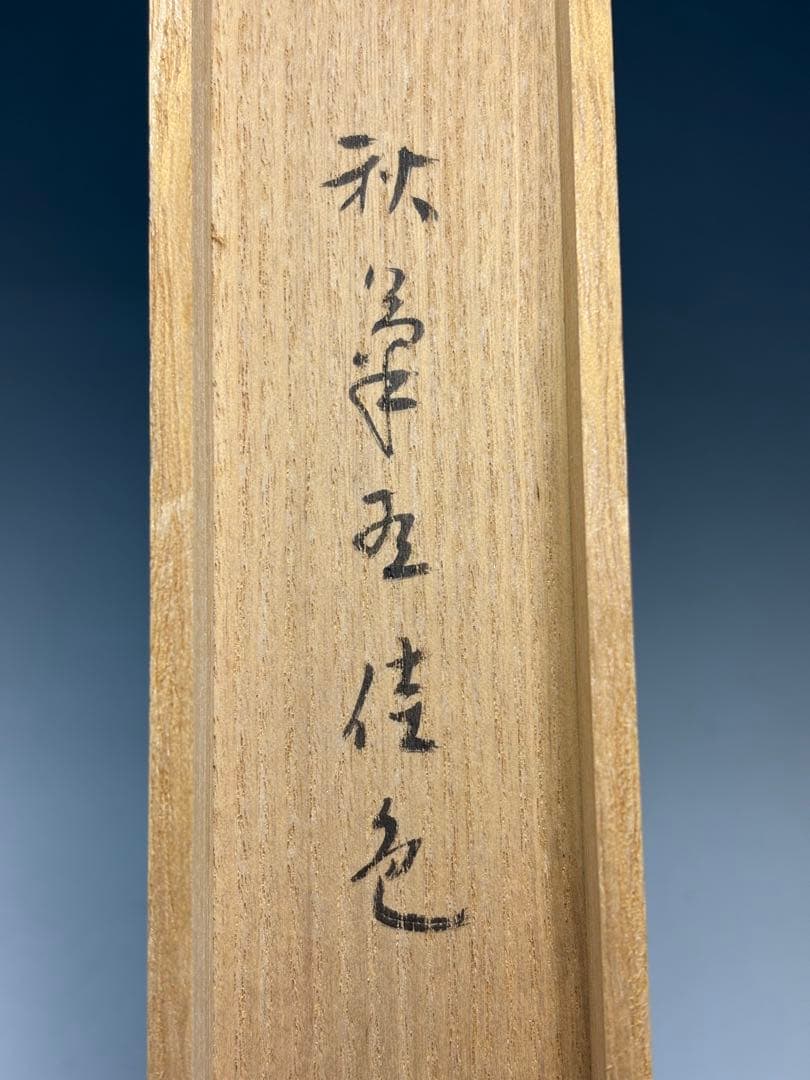 秋菊有佳色